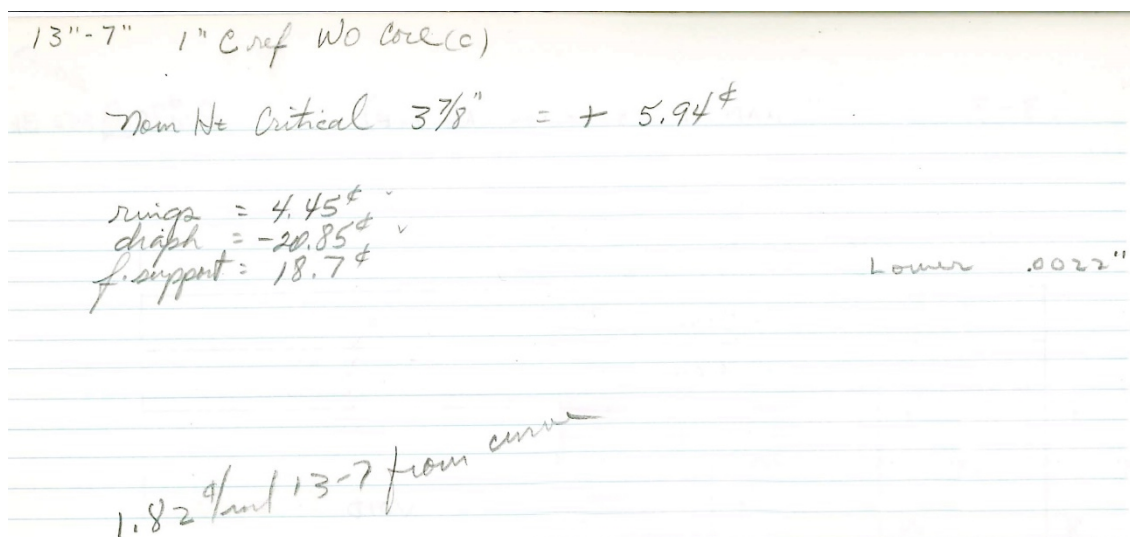 13"-7" 1" C ref WO Core (c)
Nom Ht Critical 3 7/8" = + 5.94¢
rings = 4.45¢
diaph = -20.85¢
f. support = 18.7¢
Lower .0022"
1.82 ¢/mil 13-7 from curve